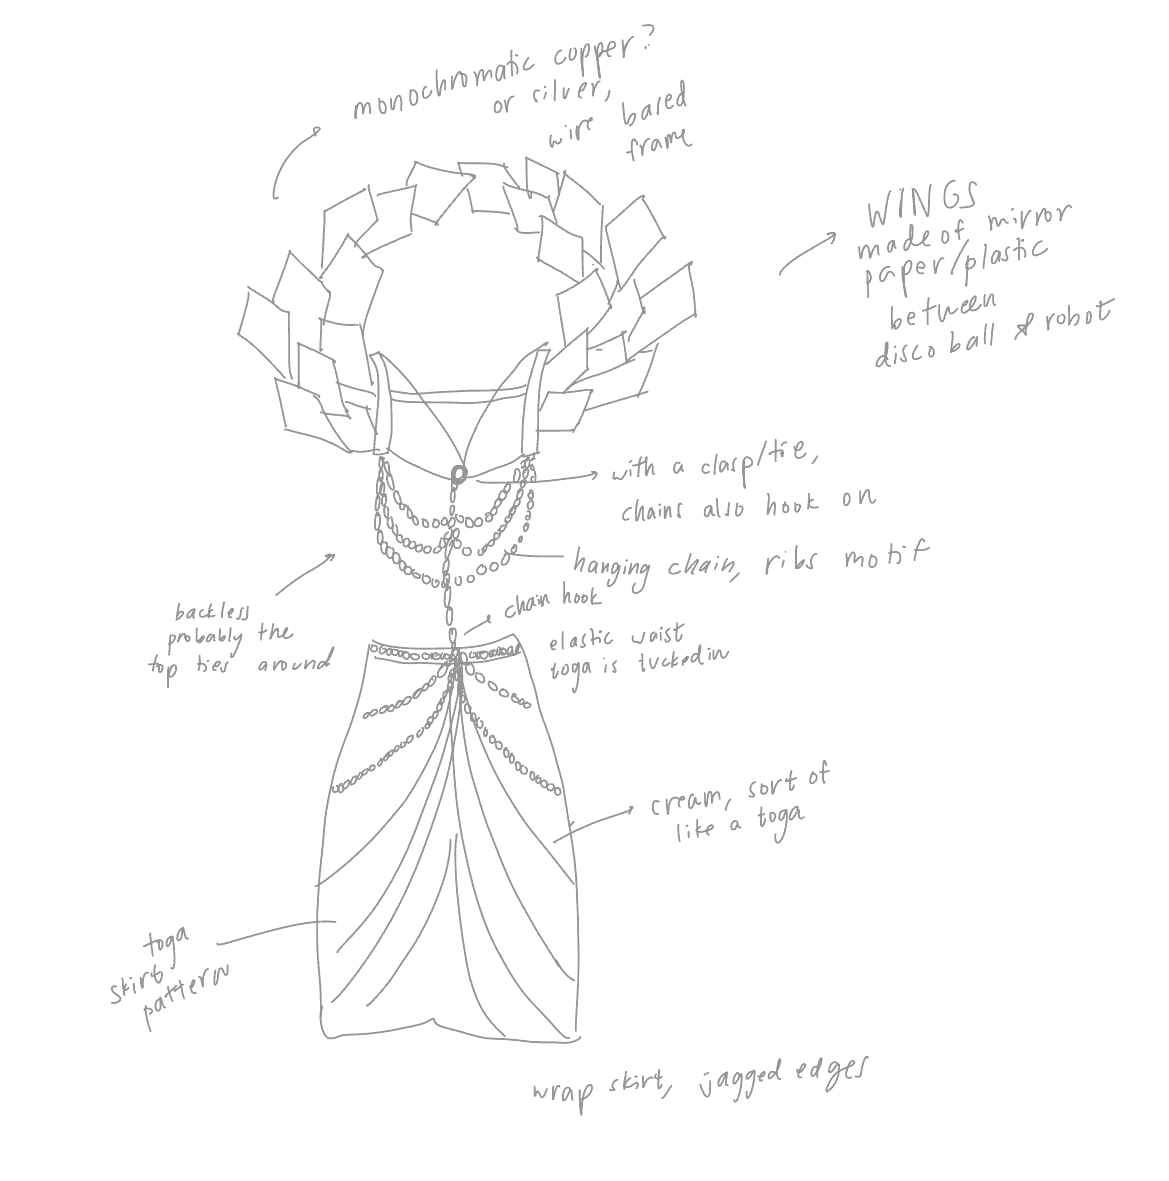 monochromatic copper?
or silver,
wire based
frame
WINGS
made of mirror
paper/plastic
between
disco ball & robot
with a clasp/tie,
chains also hook on
hanging chain, ribs motif
chain hook
backless
probably the
top ties around
elastic waist
toga is tucked in
cream, sort of
like a toga
toga
skirt
pattern
wrap skirt, jagged edges